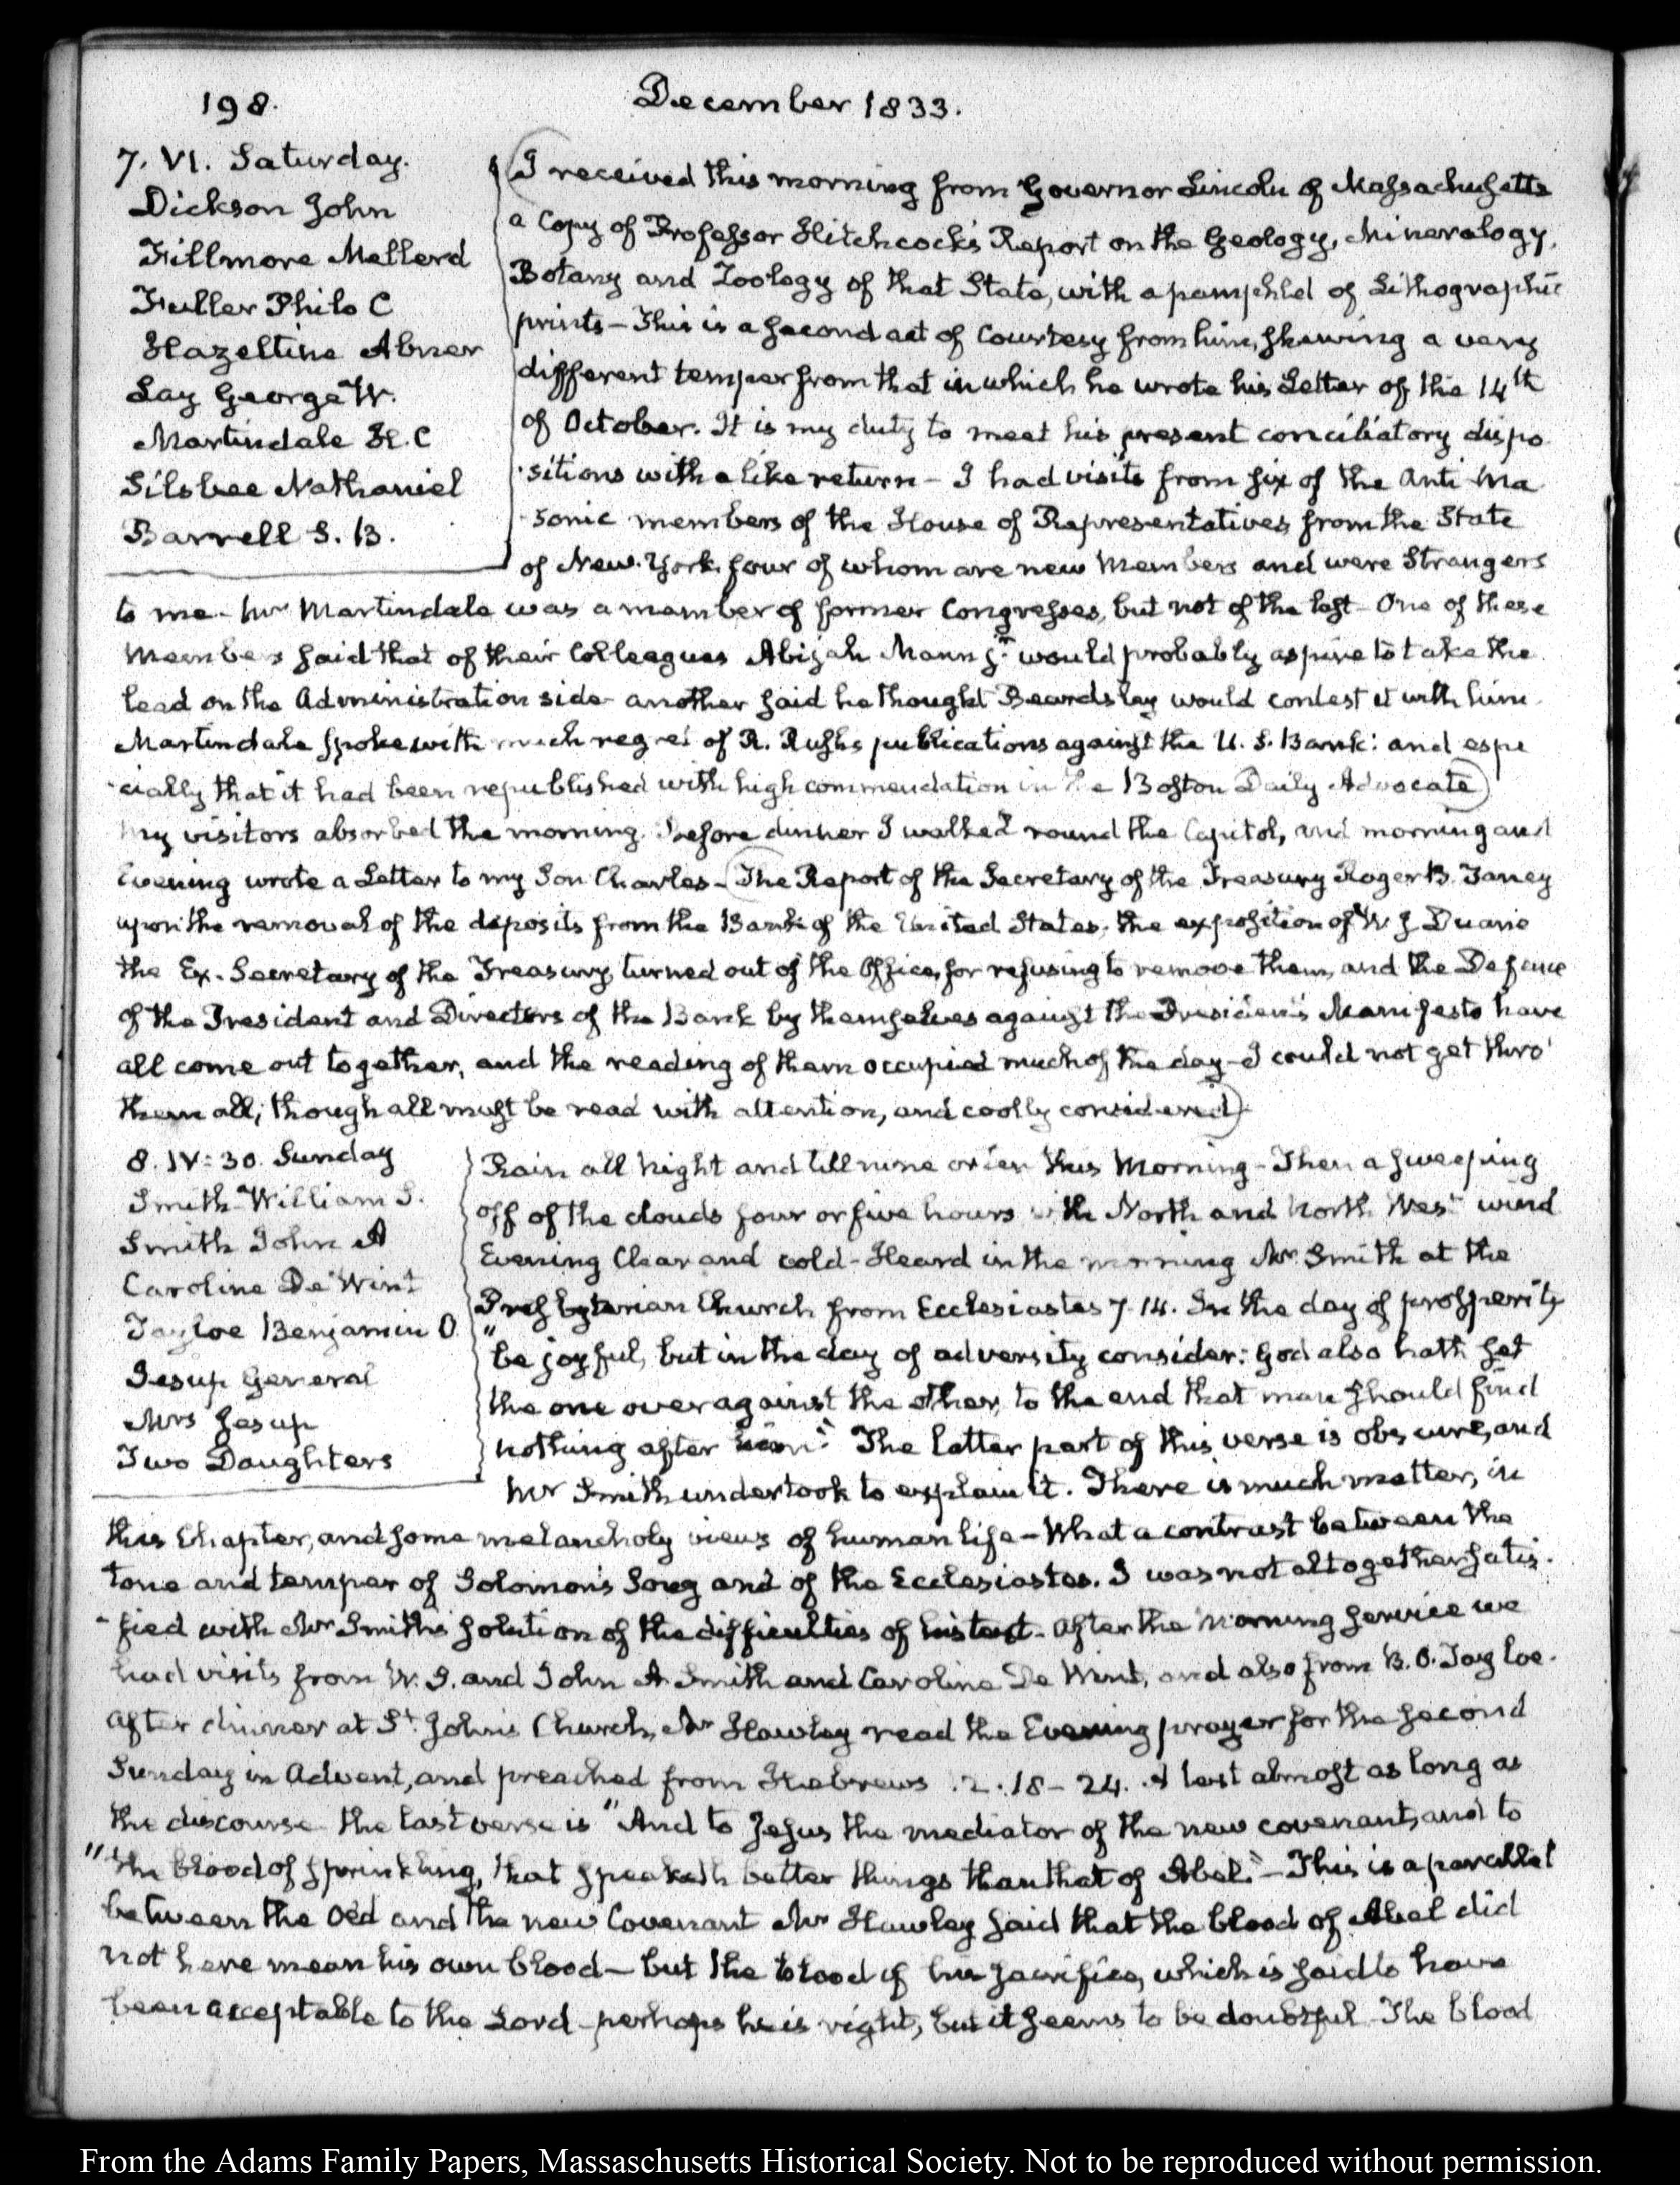 198.
December 1833.
7. VI. Saturday.
Dickson John
Fillmore Mellerd
Fuller Philo C
Hazeltine Abner
Lay George W.
Martindale H. C
Silsbee Nathaniel
Barrell S. B.
I received this morning from Governor Lincoln of Massachusetts
a Copy of Professor Hitchcock's Report on the Geology, Mineralogy,
Botany and Zoology of that State, with a pamphlet of Lithographic
prints – This is a second act of Courtesy from him, shewing a very
different temper from that in which he wrote his Letter of the 14th
of October. It is my duty to meet his present conciliatory dispo
-sitions with a like return – I had visits from six of the Anti Ma
-sonic members of the House of Representatives from the State
of New-York, four of whom are new Members and were Strangers
to me – Mr Martindale was a member of former Congresses, but not of the last – One of these
Members said that of their Colleagues Abijah Mann Jr. would probably aspire to take the
lead on the Administration side – another said he thought Beardsley would contest it with him.
Martindale spoke with much regret of R. Rush's publications against the U. S. Bank: and espe
-cially that it had been republished with high commendation in the Boston Daily Advocate
My visitors absorbed the morning. Before dinner I walked round the Capitol, and morning and
Evening wrote a Letter to my Son Charles – The Report of the Secretary of the Treasury Roger B. Taney
upon the removal of the deposits from the Bank of the United States, the exposition of W. J. Duane
the Ex-Secretary of the Treasury, turned out of the Office, for refusing to remove them, and the Defence
of the President and Directors of the Bank by themselves against the President's Manifesto have
all come out together, and the reading of them occupied much of the day – I could not get thro'
them all; though all must be read with attention, and coolly considered
8. IV: 30. Sunday
Smith William S.
Smith John A
Caroline De Wint
Tayloe Benjamin O
Jesup General
Mrs Jesup
Two Daughters
Rain all Night and till nine or ten this Morning – Then a sweeping
off of the clouds four or five hours with North and North West wind
Evening Clear and cold – Heard in the morning Mr Smith at the
Presbyterian Church from Ecclesiastes 7. 14. In the day of prosperity
"be joyful, but in the day of adversity consider: God also hath set
the one over against the other, to the end that man should find
nothing after him." The latter part of this verse is obscure, and
Mr Smith undertook to explain it. There is much matter, in
this Chapter, and some melancholy views of human life – What a contrast between the
tone and temper of Solomon's Song and of the Ecclesiastes. I was not altogether satis-
-fied with Mr Smith's solution of the difficulties of his text – After the morning service we
had visits from W. S. and John A Smith and Caroline De Wint, and also from B. O. Tayloe.
After dinner at St. John's Church, Mr Hawley read the Evening prayer for the second
Sunday in Advent, and preached from Hebrews 12: 18–24. A text almost as long as
the discourse – the last verse is "And to Jesus the mediator of the new covenant, and to
"the blood of sprinkling, that speaketh better things than that of Abel." – This is a parallel
between the Old and the new Covenant Mr Hawley said that the blood of Abel did
not here mean his own blood – but the blood of his sacrifice, which is said to have
been acceptable to the Lord – perhaps he is right, but it seems to be doubtful – The blood
From the Adams Family Papers, Massaschusetts Historical Society. Not to be reproduced without permission.